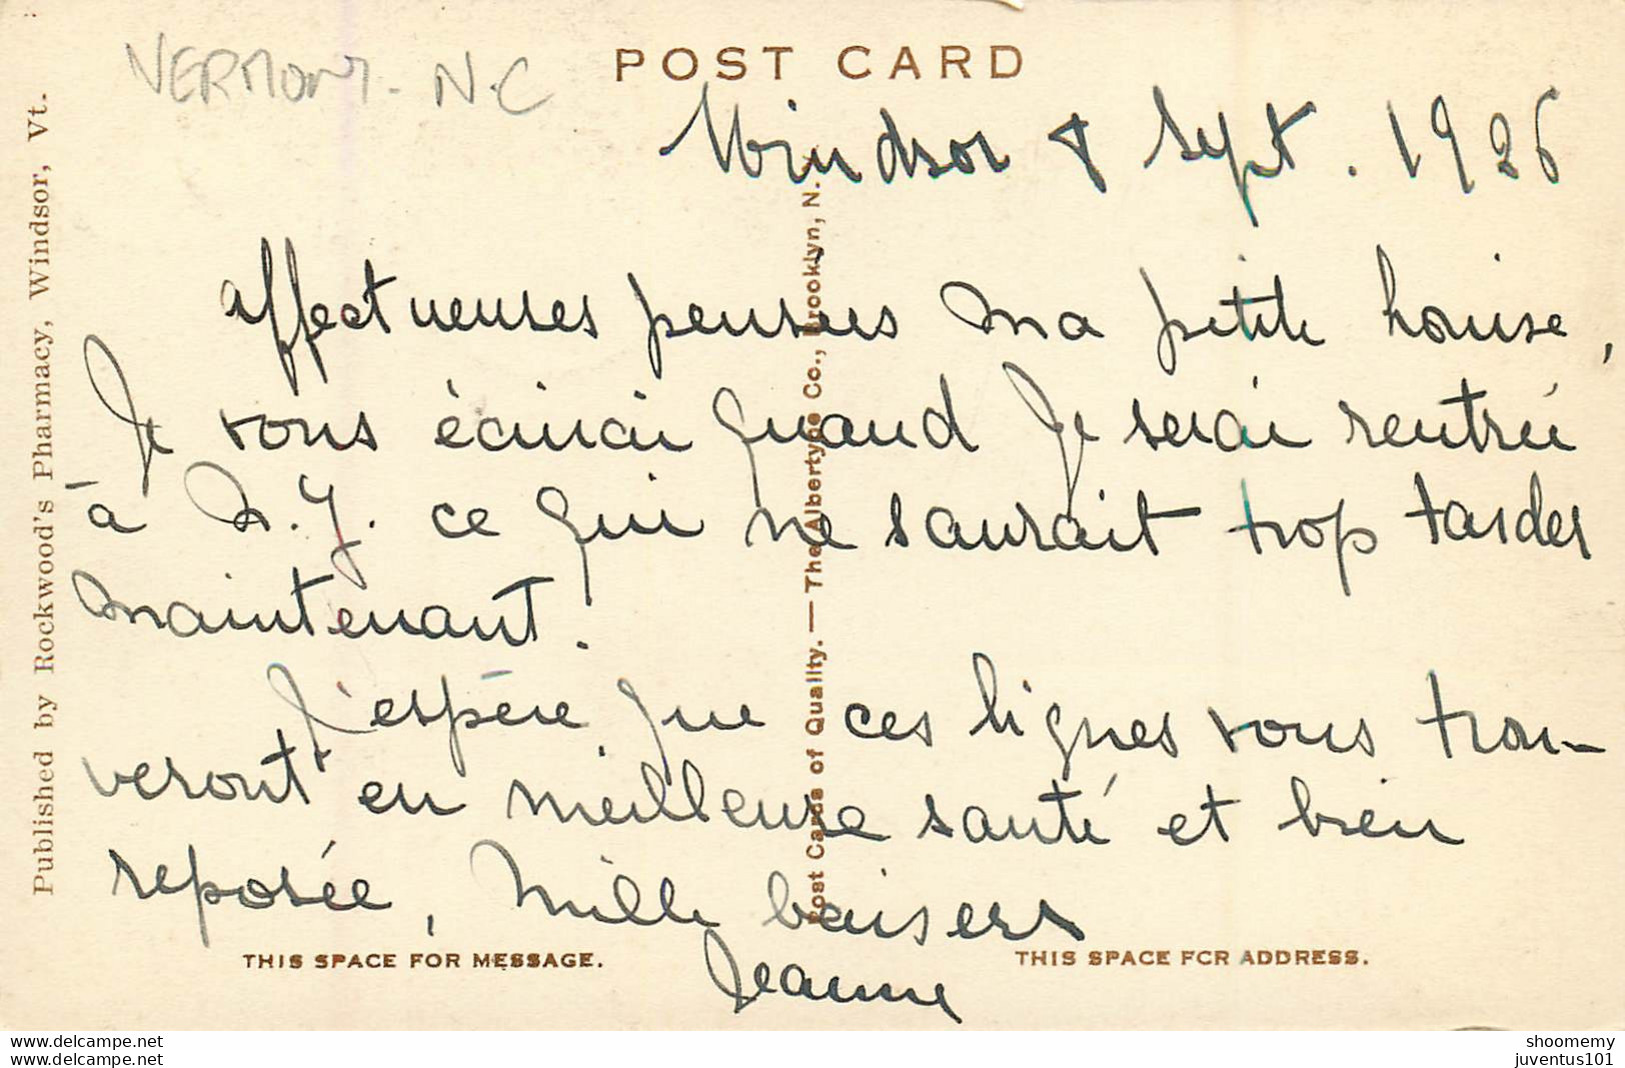 VERMONT - N.C
POST CARD
Windsor 8 Sept. 1926
affectueuses pensées ma petite Louise,
Je vous écrirai quand je serai rentrée
à N.Y. ce qui ne saurait trop tarder
maintenant.
J'espère que ces lignes vous trou-
veront en meilleure santé et bien
reposée, mille baisers
Jeanne
THIS SPACE FOR MESSAGE.
THIS SPACE FOR ADDRESS.
Published by Rockwood's Pharmacy, Windsor, Vt.
Post Cards of Quality. — The Albertype Co., Brooklyn, N.
www.delcampe.net
www.delcampe.net
shoomemy
juventus101